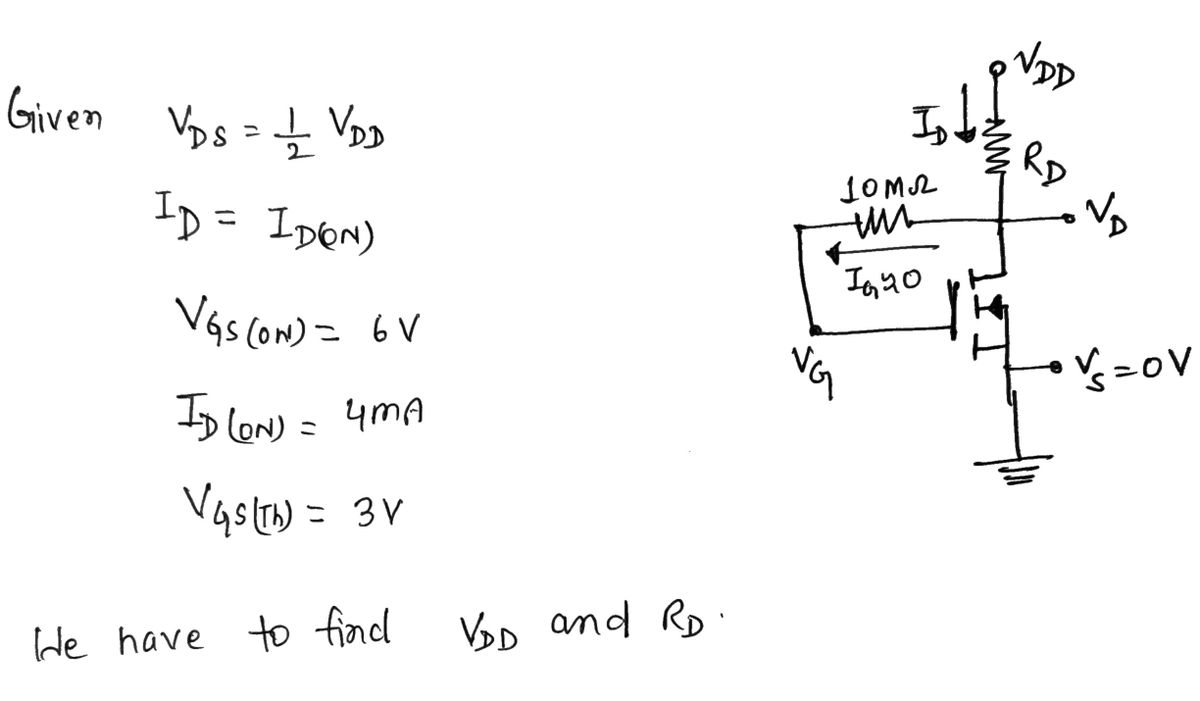 Given V_DS = 1/2 V_DD
I_D = I_D(ON)
V_GS(ON) = 6 V
I_D(ON) = 4mA
V_GS(Th) = 3 V
We have to find V_DD and R_D.
V_DD
I_D ↓
R_D
10MΩ
V_D
I_G≈0
V_G
V_S = 0 V